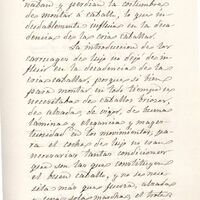 naban y perdian la costumbre
de montar á caballo, lo que in-
dudablemente influia en la de-
cadencia de las crias caballar.
La introduccion de los
carruages de lujo no dejó de in-
fluir en la decadencia de las
crias caballar, porque si bien
para montar en todo tiempo se
necesitaba de caballos briosos,
de alzada, de vigor, de buena
lamina y elegancia y mages-
tuosidad en los movimientos, para
el coche de lujo no eran
necesarias tantas condiciones
que son las que constituyen
el buen caballo, y no se nece-
sita mas que figura, alzada
y una sola marcha, el trote